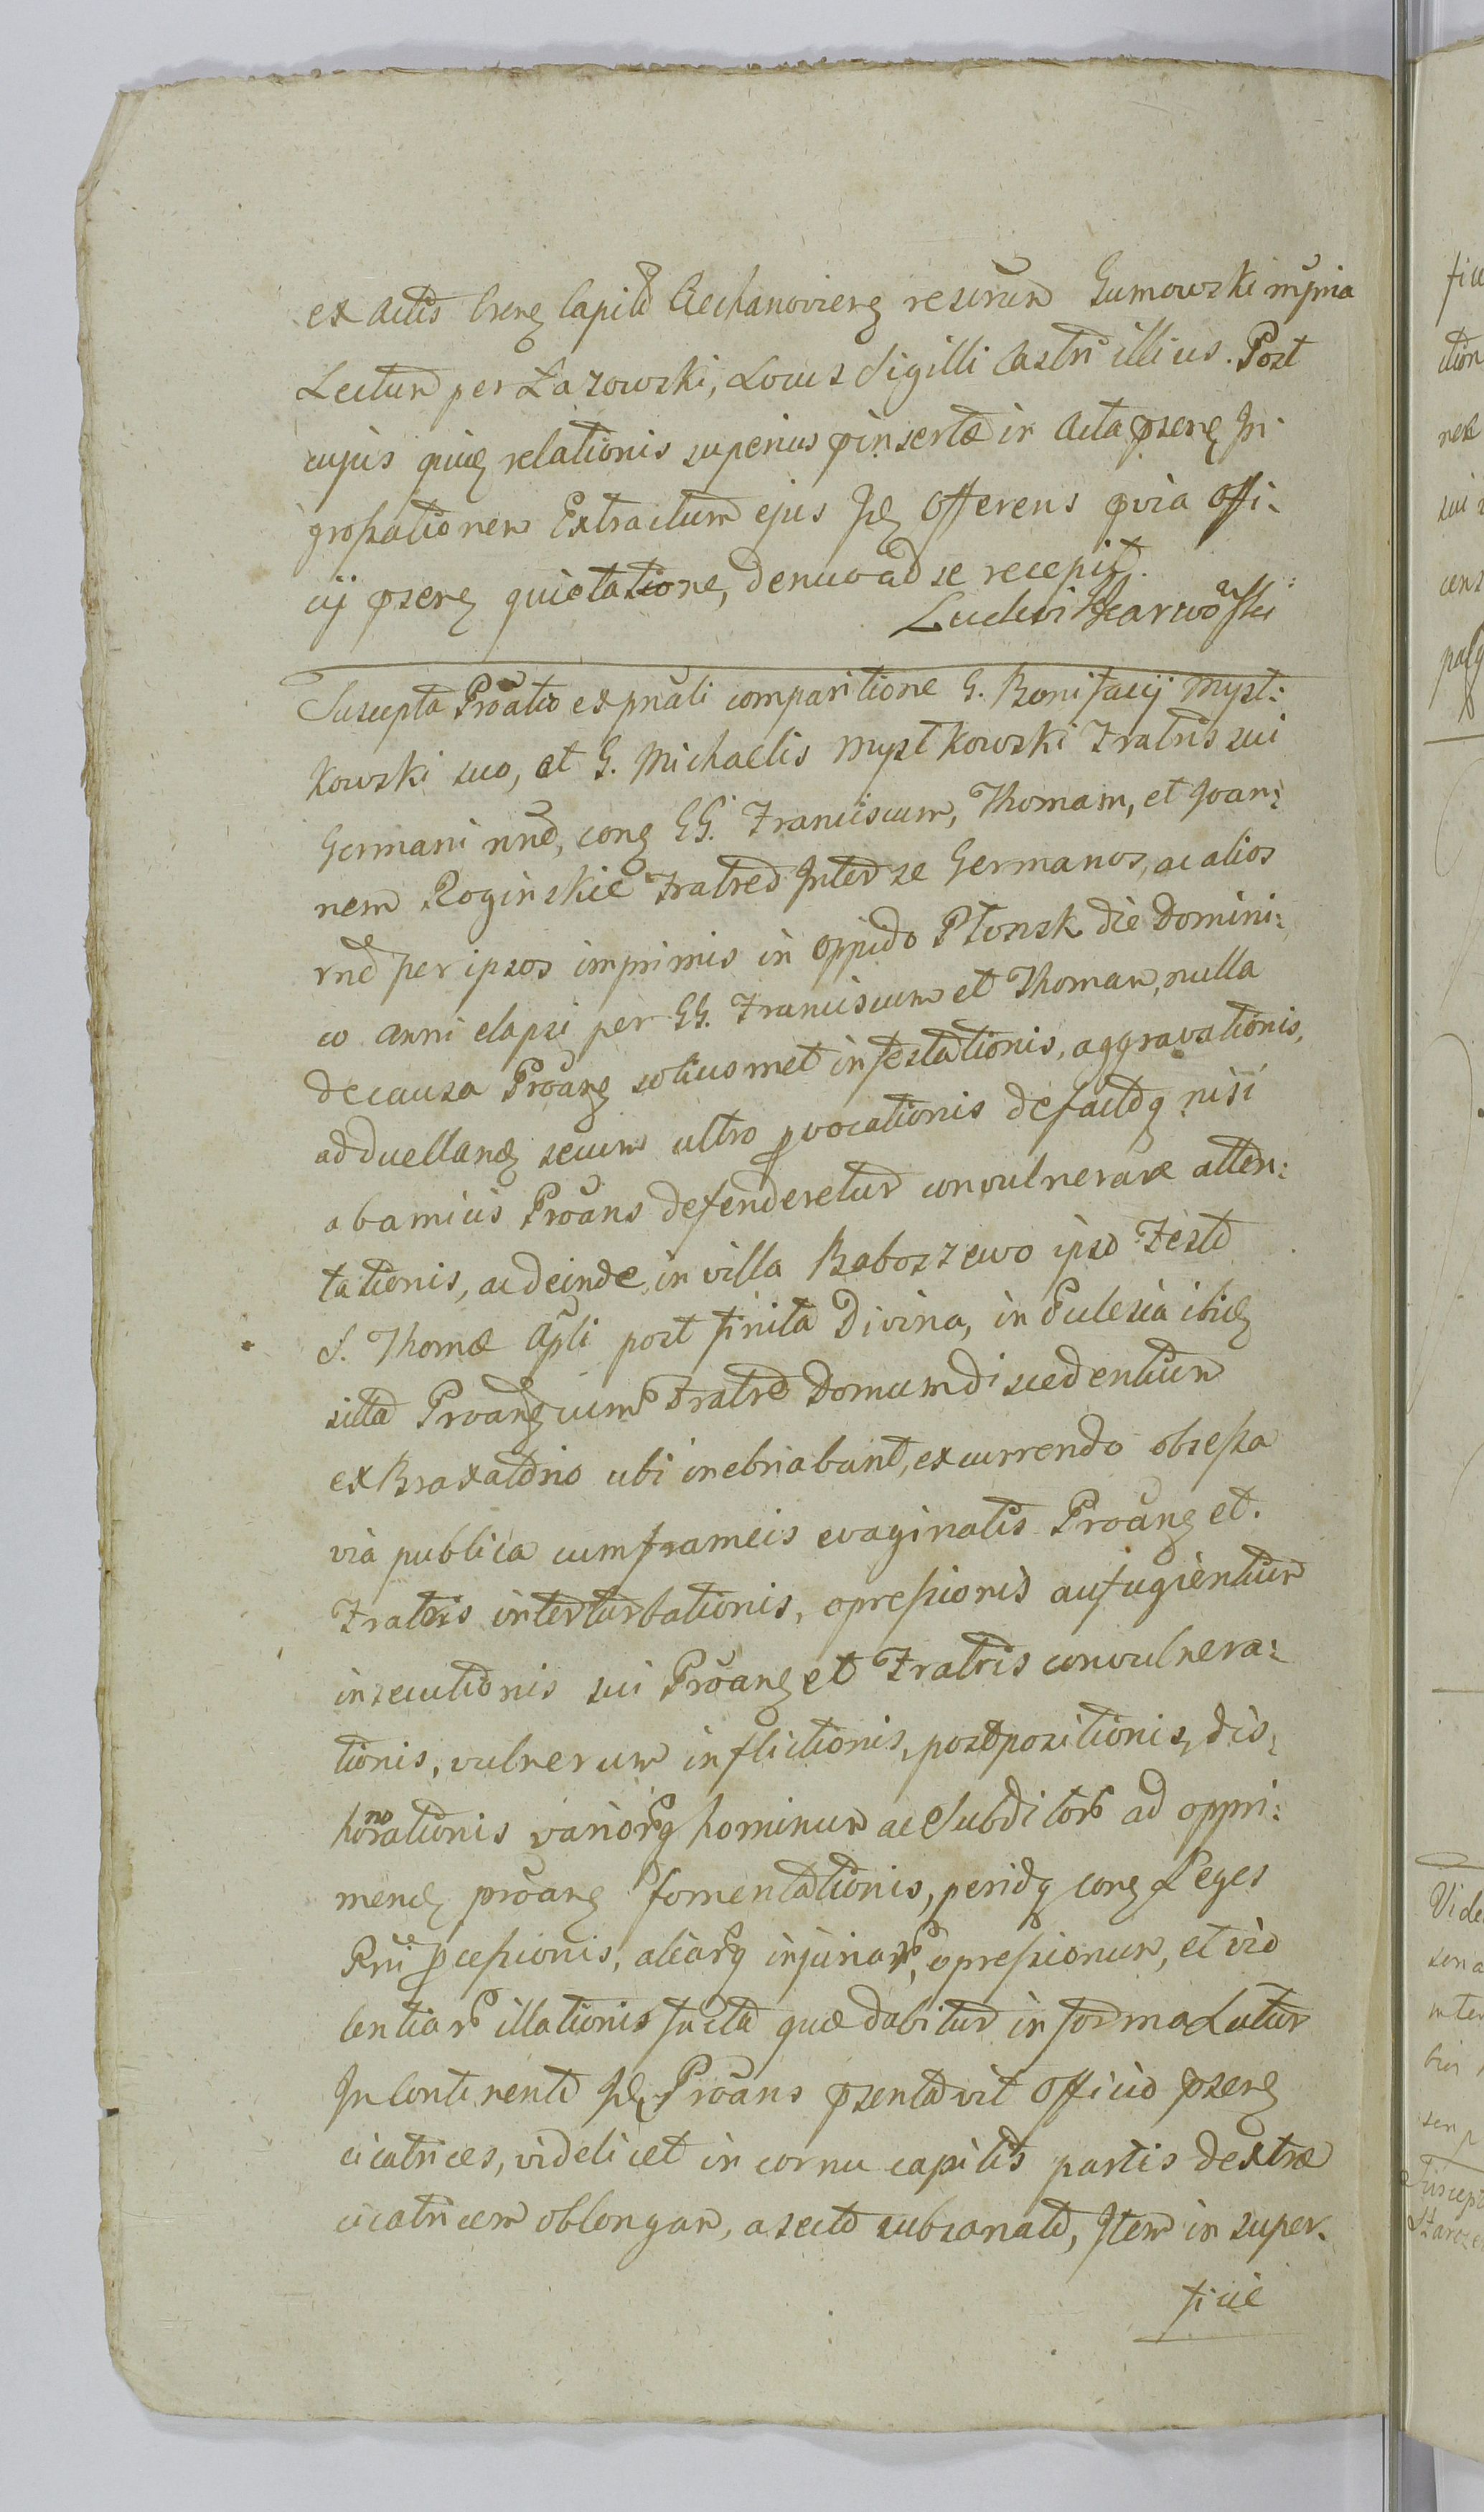 ex Actis Crens Capitlbs Ciechanoviens rescrum Gumowski mpria
Lectum per Łazowski, Locus Sigilli Castri illius. Post
cujus quid relationis superius pinsertæ in Acta psens In
grossationem Extractum ejus Id Offerens pvia Offi:
cij psens quietatione, denuo ad se recepit.
Ludwi Karwoski
Suscepta Proatio ex pnali comparitione G. Bonifacij Myst:
kowski suo, et G. Michaelis Mystkowski Fratris sui
Germani nne, cong GG. Franciscum, Thomam, et Joan:
nem Roginskie Fratres Inter se Germanos, ac alios
rne per ipsos imprimis in Oppido Płonsk die Domini:
co anni elapsi per GG. Franciscum et Thomam, nulla
de causa Proans solius met infestationis, aggravationis,
ad duelland secum ultro pvocationis de factoq nisi
ab amicis Proans defenderetur convulnerare atten:
tationis, ac deinde in villa Baboszewo ipso Festo
S. Thomæ Apli post finita Divina, in Eclesia ibid
sitta Proans cum Fratre Domum discedentium
ex Braxatorio ubi inebriabant, excurrendo obsessa
via publica cum frameis evaginatis Proans et.
Fratris inter turbationis, opressionis aufugientium
insecutionis sui Proans et Fratris convulnera:
tionis, vulnerum inflictionis, postpositionis, dis:
honorationis variorq hominum ac Subditor ad oppri:
mend proans fomentationis, peridq cong Leges
Rni pcessionis, aliarq injuriar, opressionum, et vio
lentiar illationis facta quæ dabitur in forma Latiur
In Continenti Id Proans psentavit Officio psens
cicatrices, videlicet in cornu capitis partis dextræ
cicatricem oblongam, a secto subsanato, Item in super:
ficie